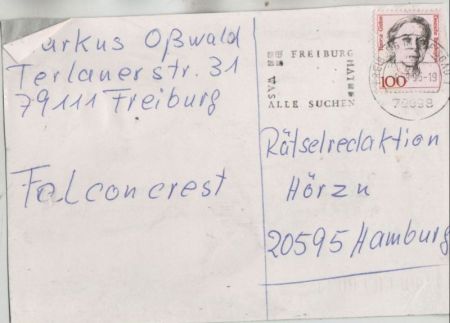 arkus Oßwald
Terlanerstr. 31
79111 Freiburg
Falconcrest
FREIBURG
HAT
WAS
ALLE SUCHEN
100
Rätselredaktion
Hörzu
20595 Hamburg